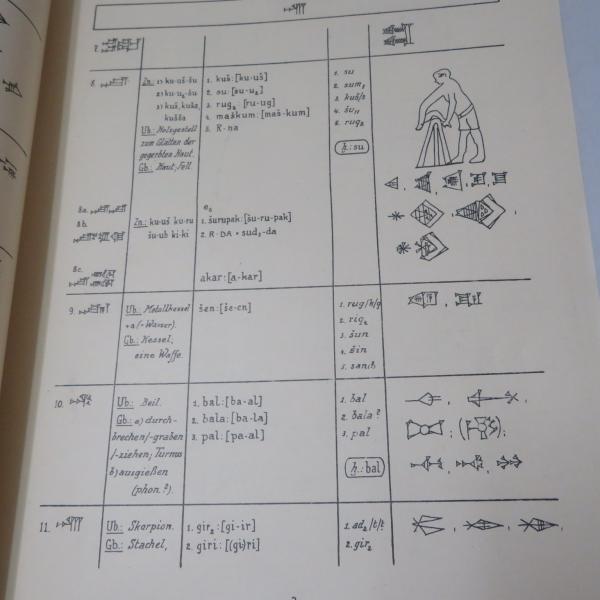 7.
8.
Zn.: 1) ku-uš-šu
2) ku-u₂-šu
3) kuš, kuša,
kušša
Ub.: Holzgestell
zum Glätten der
gegerbten Haut.
Gb.: Haut; Fell.
1. kuš: [ku-uš]
2. su: [su-u₂]
3. rug₂ [ru-ug]
4. maškum: [maš-kum]
5. R-na
1. su
2. sum₅
3. kuš/s
4. šu₁₁
5. rug₂
ḫ.: su
8a.
8b.
Zn.: ku-uš ku-ru
šu-ub ki-ki
e₅
1. šurupak: [šu-ru-pak]
2. R-DA = sud₅-da
8c.
akar: [a-kar]
9.
Ub.: Metallkessel
+a (=Wasser).
Gb.: Kessel;
eine Waffe.
šen: [še-en]
1. rug/k/q
2. riq₂
3. šun
4. šin
10.
Ub.: Beil.
Gb.: a) durch-
brechen/-graben
/-ziehen; Turnus
b) ausgießen
(phon.?).
1. bal: [ba-al]
2. bala: [ba-la]
3. pal: [pa-al]
1. bal
2. bala?
3. pal
ḫ.: bal
11.
Ub.: Skorpion.
Gb.: Stachel,
1. gir₂: [gi-ir]
2. giri: [(gi)ri]
1. ad₂/t/ṭ
2. gir₂